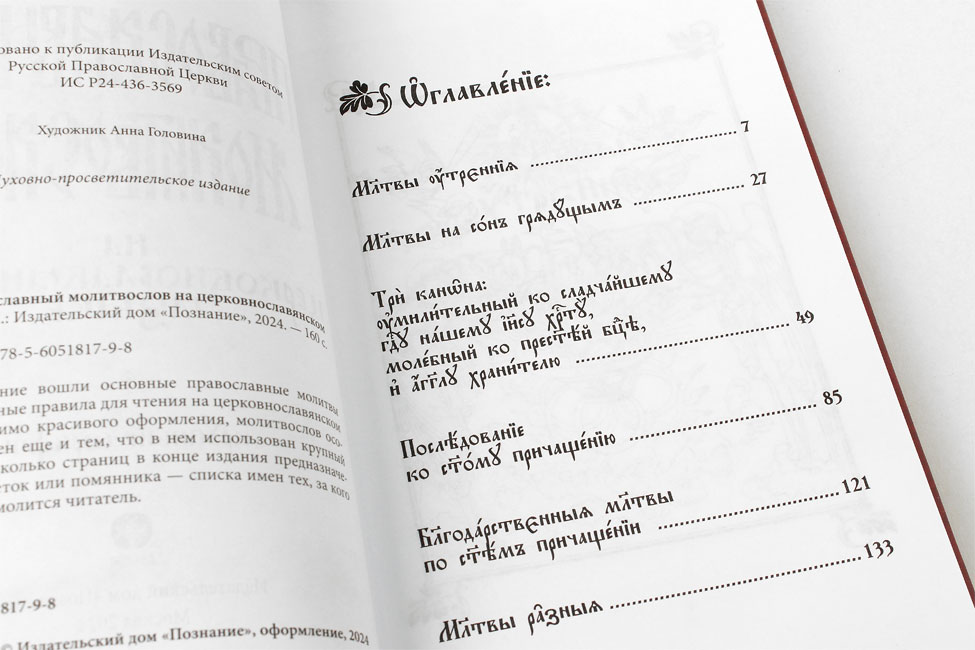 овано к публикации Издательским советом
Русской Православной Церкви
ИС Р24-436-3569
Художник Анна Головина
уховно-просветительское издание
славный молитвослов на церковнославянском
.: Издательский дом «Познание», 2024. — 160 с.
78-5-6051817-9-8
ние вошли основные православные молитвы
ные правила для чтения на церковнославянском
имо красивого оформления, молитвослов осо-
ен еще и тем, что в нем использован крупный
сколько страниц в конце издания предназначе-
еток или помянника — списка имен тех, за кого
молится читатель.
817-9-8
© Издательский дом «Познание», оформление, 2024
Ѡ҆главле́нїе:
Мл҃твы ᲂу҆́трєннїѧ 7
Мл҃твы на со́нъ грѧдꙋ́щымъ 27
Трѝ канѡ́на:
ᲂу҆мили́тельный ко сладча́йшемꙋ
гдⷭ҇ꙋ на́шемꙋ і҆и҃сꙋ хрⷭ҇тꙋ̀,
моле́бный ко прест҃ѣ́й бцⷣѣ,
и҆ а҆́гг҃лꙋ храни́телю 49
Послѣ́дованїе
ко ст҃о́мꙋ причаще́нїю 85
Блг҃ода́рствєнныѧ мл҃твы
по ст҃ѣ́мъ причаще́нїи 121
Мл҃твы ра̑зныѧ 133